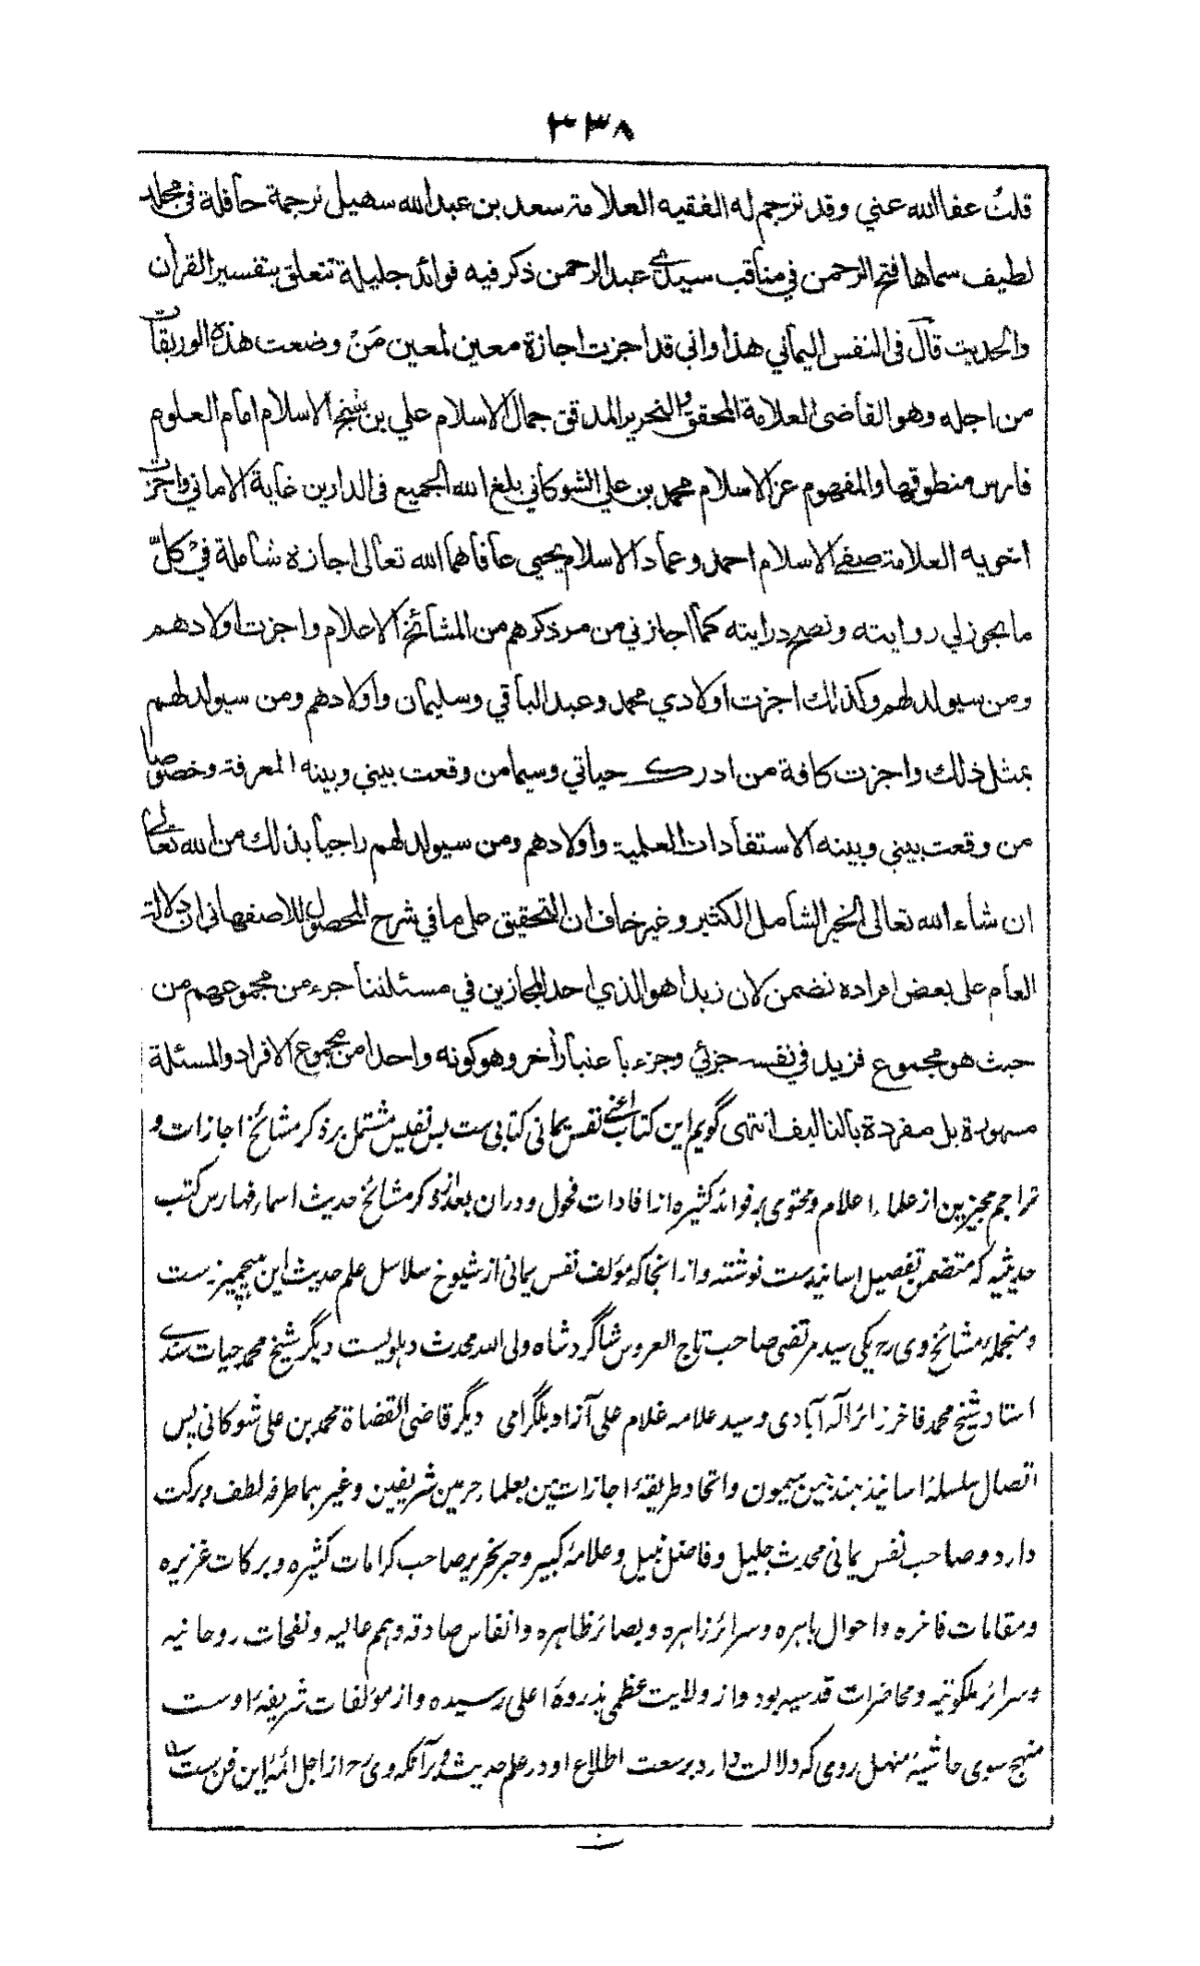 ٣٣٨
قلتُ عفا الله عني وقد ترجم له الفقيه العلامة سعد بن عبد الله سهيل ترجمة حافلة في مجلد
لطيف سماها فتح الرحمن في مناقب سيدي عبد الرحمن ذكر فيه فوائد جليلة تتعلق بتفسير القرآن
والحديث قال في النفس اليماني هذا واني قد اجزت اجازة معين لمعين مَنْ وضعت هذه الوريقات
من اجله وهو القاضي العلامة المحقق والنحرير المدقق جمال الاسلام علي بن شيخ الاسلام امام العلوم
فارس منطوقها والمفهوم عز الاسلام محمد بن علي الشوكاني بلغ الله الجميع في الدارين غاية الاماني واجزت
اخويه العلامة صفي الاسلام احمد وعماد الاسلام يحيى عافاهما الله تعالى اجازة شاملة في كلّ
ما يجوز لي روايته وتصح درايته كما اجازني من مر ذكرهم من المشائخ الاعلام واجزت اولادهم
ومن سيولد لهم وكذلك اجزت اولادي محمد وعبد الباقي وسليمان واولادهم ومن سيولد لهم
بمثل ذلك واجزت كافة من ادرك حياتي وسيما من وقعت بيني وبينه المعرفة وخصوصا
من وقعت بيني وبينه الاستفادات العلمية واولادهم ومن سيولد لهم راجيا بذلك من الله تعالى
ان شاء الله تعالى الخير الشامل الكثير وغير خاف ان التحقيق على ما في شرح المحصول للاصفهاني ان دلالة
العام على بعض افراده تضمن لان زيدا هو الذي احد المجازين في مسئلتنا جزء من مجموعهم من
حيث هو مجموع فزيد في نفسه جزئي وجزء باعتبار آخر وهو كونه واحدا من مجموع الافراد والمسئلة
مشهورة بل مفردة بالتاليف انتهى گويم اين كتاب اعنى نفس يمانى كتابى ست بس نفيس مشتمل بر ذكر مشائخ اجازات و
تراجم مجيزين از علماء اعلام ومحتوى بر فوائد كثيره از افادات فحول ودران بعد از ذكر مشائخ حديث اسماء فهارس كتب
حديثيه كه متضمن تفصيل اسانيد ست نوشته واز انجا كه مؤلف نفس يمانى از شيوخ سلاسل علم حديث اين هيچميرز ست
ومنجمله مشائخ وى رح يكى سيد مرتضى صاحب تاج العروس شاگرد شاه ولى الله محدث دهلويست ديگر شيخ محمد حيات سندى
استاد شيخ محمد فاخر زائر اله آبادى وسيد علامه غلام على آزاد بلگرامى ديگر قاضى القضاة محمد بن على شوكانى پس
اتصال سلسلۀ اسانيذ هند بيمن ميمون واتحاد طريقۀ اجازات يمن بعلماء حرمين شريفين وغيرهما طرفه لطف وبركت
دارد وصاحب نفس يمانى محدث جليل وفاضل نبيل وعلامۀ كبير وحبر نحرير صاحب كرامات كثيره وبركات غزيره
ومقامات فاخره واحوال باهره وسرائر زاهره وبصائر ظاهره وانفاس صادقه وهمم عاليه ونفحات روحانيه
وسرائر ملكوتيه ومحاضرات قدسيه بود واز ولايت عظمى بذروۀ اعلى رسيده واز مؤلفات شريفۀ اوست
منهج سوى حاشيۀ منهل روى كه دلالت دارد بر سعت اطلاع او در علم حديث وبر آنكه وى رح از اجل ائمۀ اين فن ست